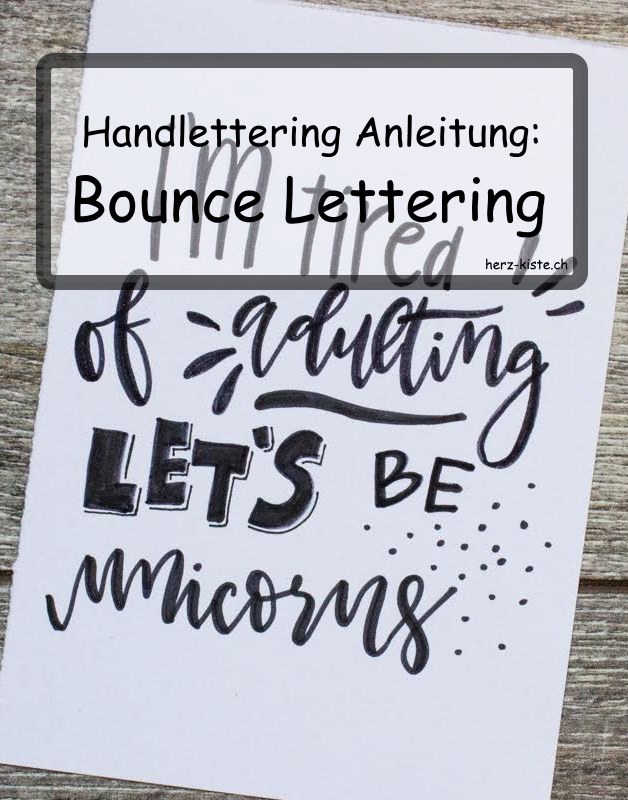 Handlettering Anleitung:
I'm tired
Bounce Lettering
herz-kiste.ch
of adulting
LET'S BE
unicorns